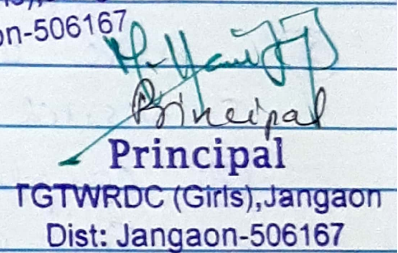 on-506167
Principal
Principal
TGTWRDC (Girls),Jangaon
Dist: Jangaon-506167